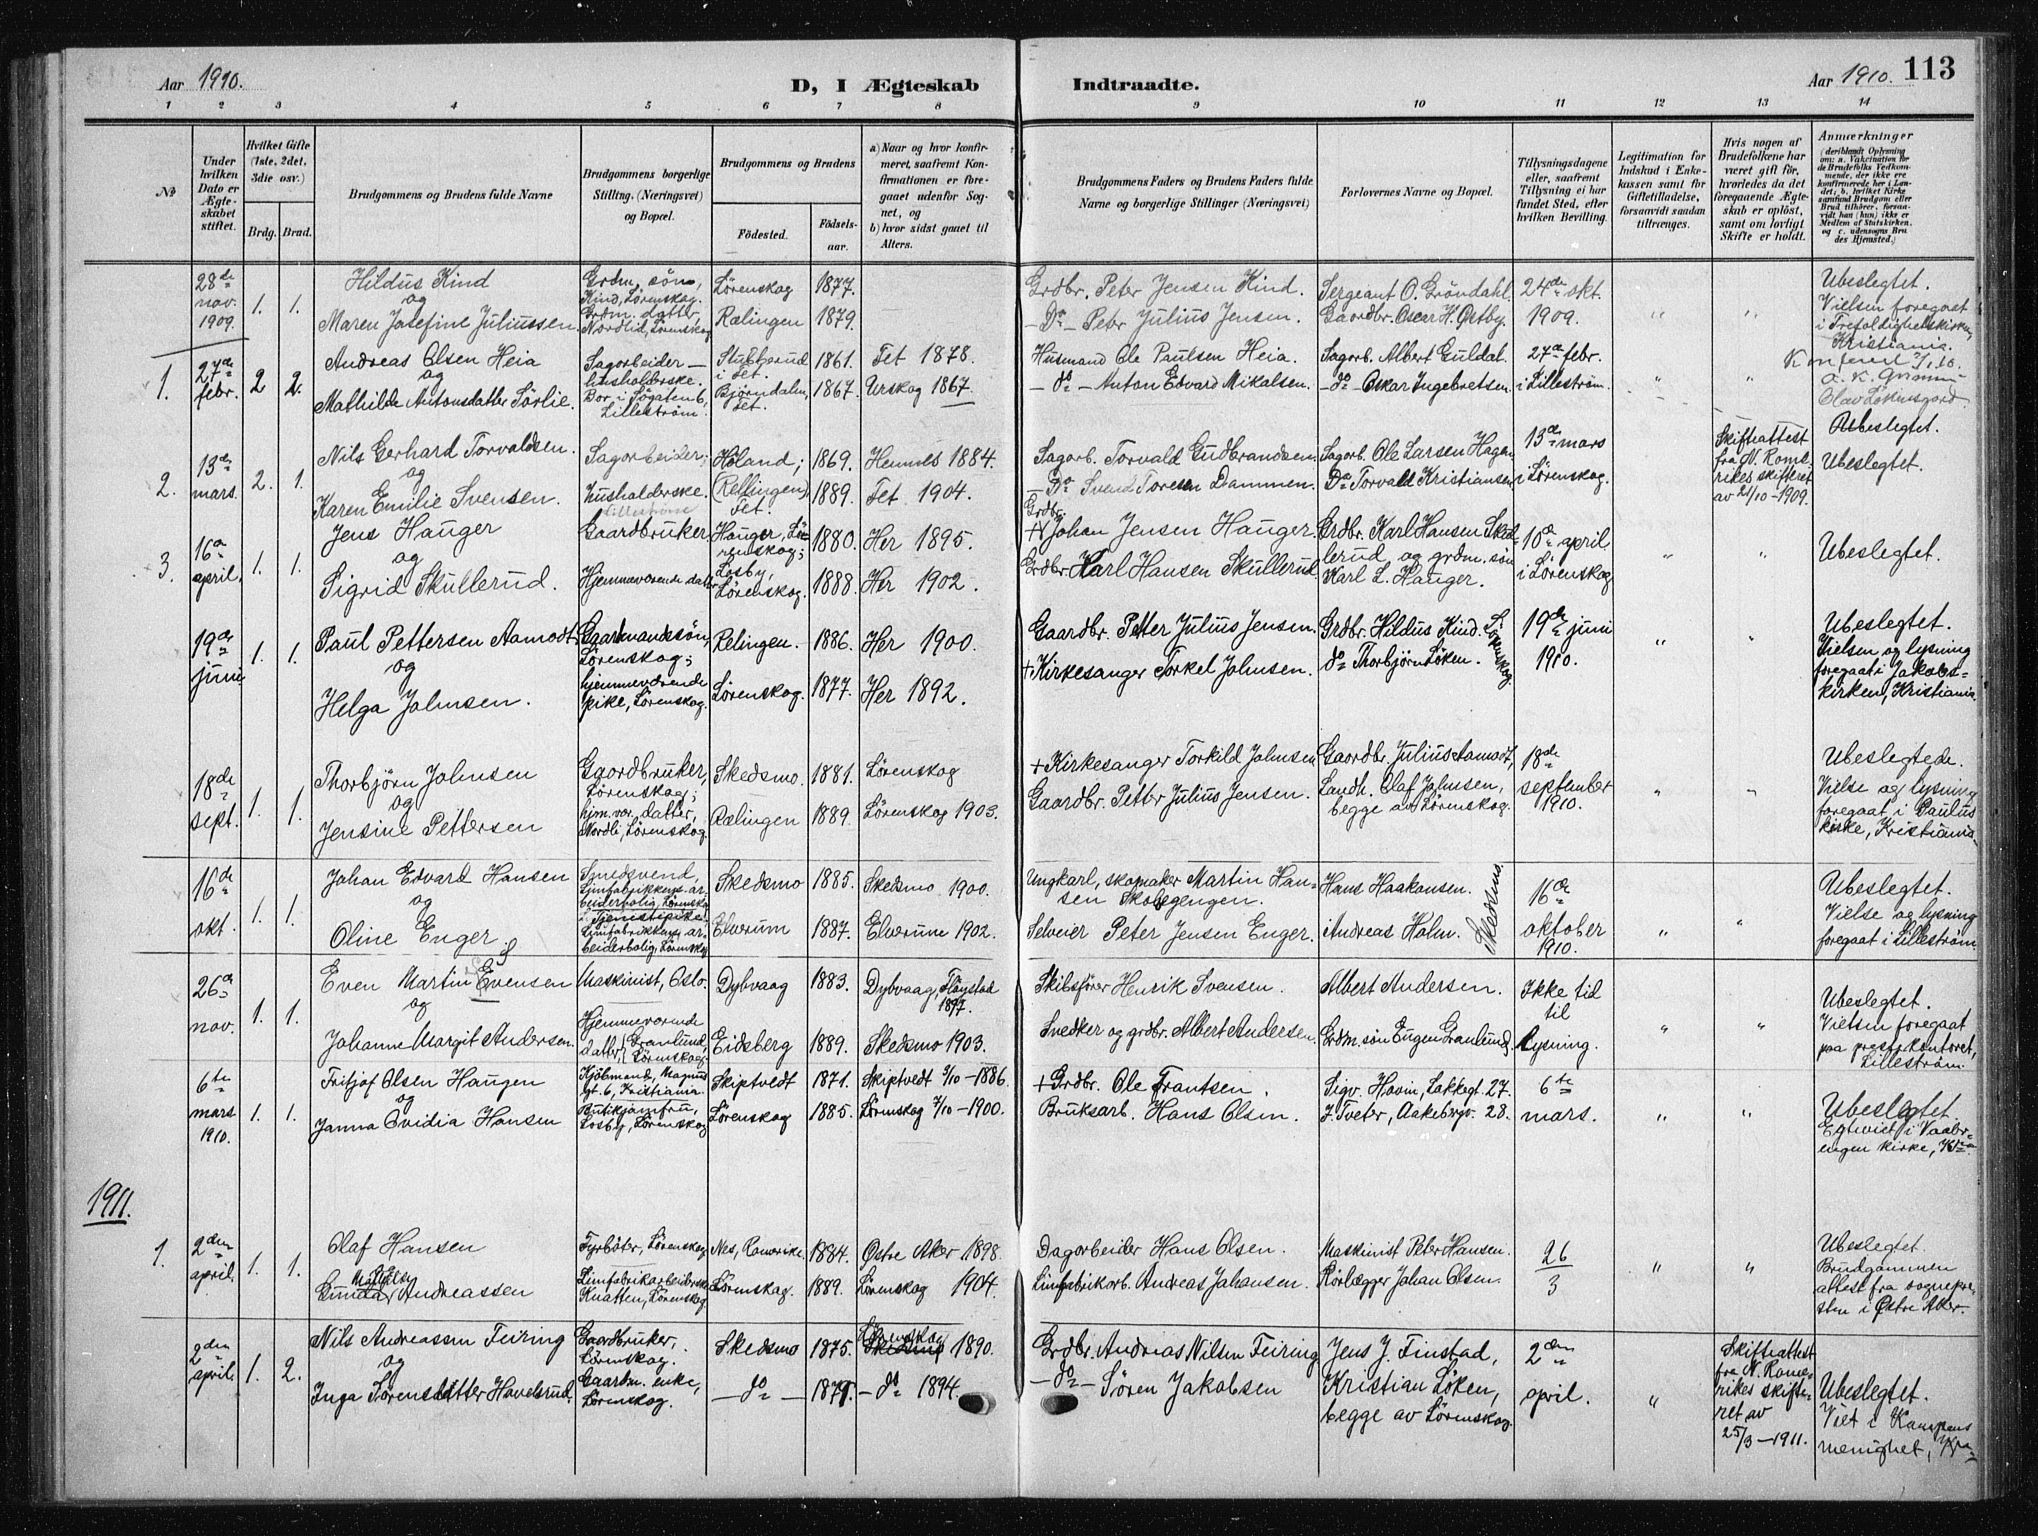 Aar 1910.
D, I Ægteskab
Indtraadte.
Aar 1910.
113
1 2 3 4 5 6 7 8 9 10 11 12 13 14
№
Under hvilken Dato er Ægteskabet stiftet.
Hvilket Gifte (1ste, 2det, 3die osv.)
Brdg. Brud.
Brudgommens og Brudens fulde Navne
Brudgommens borgerlige Stillng. (Næringsvei) og Bopæl.
Brudgommens og Brudens
Fødested.
Fødselsaar.
a) Naar og hvor konfirmeret, saafremt Konfirmationen er foregaaet udenfor Sognet, og
b) hvor sidst gaaet til Alters.
Brudgommens Faders og Brudens Faders fulde Navne og borgerlige Stillinger (Næringsvei)
Forlovernes Navne og Bopæl.
Tillysningsdagene eller, saafremt Tillysning ei har fundet Sted, efter hvilken Bevilling.
Legitimation for Indskud i Enkekassen samt for Giftetilladelse, forsaavidt saadan tiltrænges.
Hvis nogen af Brudefolkene har været gift før, hvorledes da det foregaaende Ægteskab er opløst, samt om lovligt Skifte er holdt.
Anmærkninger
(deriblandt Oplysning om: a. Vakcination for de Brudefolks Vedkommende, der ikke ere konfirmerede her i Landet; b. hvilket Kirkesamfund Brudgom eller Brud tilhører, forsaavidt han (hun) ikke er Medlem af Statskirken, og c. udensogns Brudes Hjemsted.)
28de nov. 1909
1. 1.
Hildus Kind
og
Maren Josefine Juliussen.
Grdm. søn, Kind, Lørenskog.
Grdm. datter, Nordlid, Lørenskog
Lørenskog 1877.
Rælingen 1879.
Grdbr. Peter Jensen Kind.
— Do — Peter Julius Jensen.
Sergeant O. Gröndahl.
Gaardbr. Oscar H. Østby.
24de okt. 1909.
" "
Ubeslegtet.
Vielsen foregaat i Trefoldighetskirken, Kristiania.
1. 27de febr.
2 2.
Andreas Olsen Heia
og
Mathilde Antonsdatter Sörlie.
Sagarbeider — husholderske.
Bor i Søgaten 6, Lillestrøm.
Stubberud i Fet. 1861. Fet 1878.
Bjørndalen, Fet. 1867. Urskog 1867
Husmand Ole Paulsen Heia.
— do — Anton Edvard Mikalsen.
Sagarb. Albert Guldat.
— do — Oskar Ingebretsen.
27de febr. i Lillestrøm.
" "
2. 13de mars.
2. 1.
Nils Gerhard Torvaldsen.
og
Karen Emilie Svensen.
Sagarbeider;
Husholderske.
Lillestrøm
Høland; 1869. Hemnes 1884.
(Rellingen) Fet. 1889. Fet 1904.
Sagarb. Torvald Gudbrandsen.
— Do Svend Toresen Dammen.
Sagarb. Ole Larsen Hagen
Do Torvald Kristiansen
13de mars i Lørenskog.
Skifteattest fra N. Romerikes skifteret av 21/10 – 1909.
Ubeslegtet.
Ubeslegtet.
3. 16de april.
1. 1.
Jens Hauger
og
Sigrid Skullerud.
Gaardbruker
Hjemmeværende datter
Hauger, Lørenskog; 1880. Her 1895.
Losby, Lørenskog. 1888. Her 1902.
Grdbr. Johan Jensen Hauger.
Grdbr. Karl Hansen Skullerud
Grdbr. Karl Hansen Skullerud og grdm. søn Karl L. Hauger.
10de april i Lørenskog
" "
Ubeslegtet.
19de juni
1. 1.
Paul Pettersen Aamodt
og
Helga Johnsen.
Gaardmandssøn, Lørenskog;
hjemmeværende pike, Lørenskog.
Relingen. 1886. Her 1900.
Lørenskog. 1877. Her 1892.
Gaardbr. Petter Julius Jensen.
+ Kirkesanger Torkel Johnsen.
Grdbr. Hildus Kind.
do Thorbjørn Løken. Lørenskog
19de juni 1910.
" "
Ubeslegtet.
Vielsen og lysning foregaat i Jakobskirken, Kristiania.
18de sept.
1. 1.
Thorbjörn Johnsen
og
Jensine Pettersen
Gaardbruker, Lørenskog;
hjm. vær. datter, Nordli, Lørenskog.
Skedsmo. 1881. Lørenskog
Rælingen 1889. Lørenskog 1903.
+ Kirkesanger Torkild Johnsen
Gaardbr. Petter Julius Jensen.
Gaardbr. Julius Aamodt,
Landh. Olaf Johnsen, begge av Lørenskog.
18de september 1910.
" "
Ubeslegtede.
Vielse og lysning foregaat i Paulus kirke, Kristiania.
16de okt.
1. 1.
Johan Edvard Hansen
og
Oline Enger.
Smedsvend, Limfabrikkens arbeiderbolig, Lørenskog.
Tjenestepike Limfabrikkens arbeiderbolig, Lørenskog
Skedsmo 1885. Skedsmo 1900.
Elverum 1887. Elverum 1902.
Ungkarl, skomaker Martin Hansen Skolegengen.
Selveier Peter Jensen Enger.
Hans Haakonsen.
Andreas Holm. Skedsmo.
16de oktober 1910.
" "
Ubeslegtet.
Vielse og lysning foregaat i Lillestrøm
26de nov.
1. 1.
Even Martin Evensen
og
Johanne Margit Andersen.
Maskinist, Oslo.
Hjemmeværende datter, Granlund, Lørenskog.
Dybvaag 1883. Dybvaag, Fløystad 1897.
Eidsberg 1889. Skedsmo 1903.
Skibsfører Henrik Svensen.
Snedker og grdbr. Albert Andersen.
Albert Andersen.
Grdm. søn Eugen Granlund.
Ikke tid til lysning.
" "
Ubeslegtet.
Vielsen foregaat paa prestekontoret, Lillestrøm.
6te mars 1910.
1. 1.
Fritjof Olsen Haugen
og
Janna Ovidia Hansen
Kjøbmand, Magnus gt. 6, Kristiania.
Butikjomfru, Losby, Lørenskog
Skiptvedt 1871. Skiptvedt 3/10 – 1886.
Lørenskog 1885. Lørenskog 7/10 – 1900.
+ Grdbr. Ole Frantsen.
Bruksarb. Hans Olsen.
Sigv. Hovin, Lakkegt. 27.
J. Tveter, Aakebergv. 28.
6te mars.
" "
Ubeslegtet.
Egteviet i Vaalerengen kirke, Kr.a
1911.
1. 2den april.
1. 1.
Olaf Hansen
og
Gunda Mathilde Andreassen
Fyrbøter, Lørenskog
Limfabrikarbeiderske Knatten, Lørenskog.
Nes, Romerike. 1884. Østre Aker 1898.
Lørenskog. 1889. Lørenskog 1904.
Dagarbeider Hans Olsen.
Limfabrikarb. Andreas Johansen.
Maskinist Peter Hansen.
Rørlægger Johan Olsen.
26/3
" "
Ubeslegtet.
Brudgommen attest fra sognepresten i Østre Aker.
2den april.
1. 2.
Nils Andreassen Feiring
og
Inga Sørensdatter Hovelsrud.
Gaardbruker, Lørenskog.
Gaardm. enke, Lørenskog.
Skedsmo 1875. Lørenskog 1890.
— do — 1871. — do 1894.
Grdbr. Andreas Nilsen Feiring
— do — Søren Jakobsen
Jens J. Finstad,
Kristian Løken, begge av Lørenskog.
2den april.
"
Skifteattest fra N. Romerikes skifteret av 25/3 – 1911.
Ubeslegtet.
Viet i Kampens menighet, Kr.a